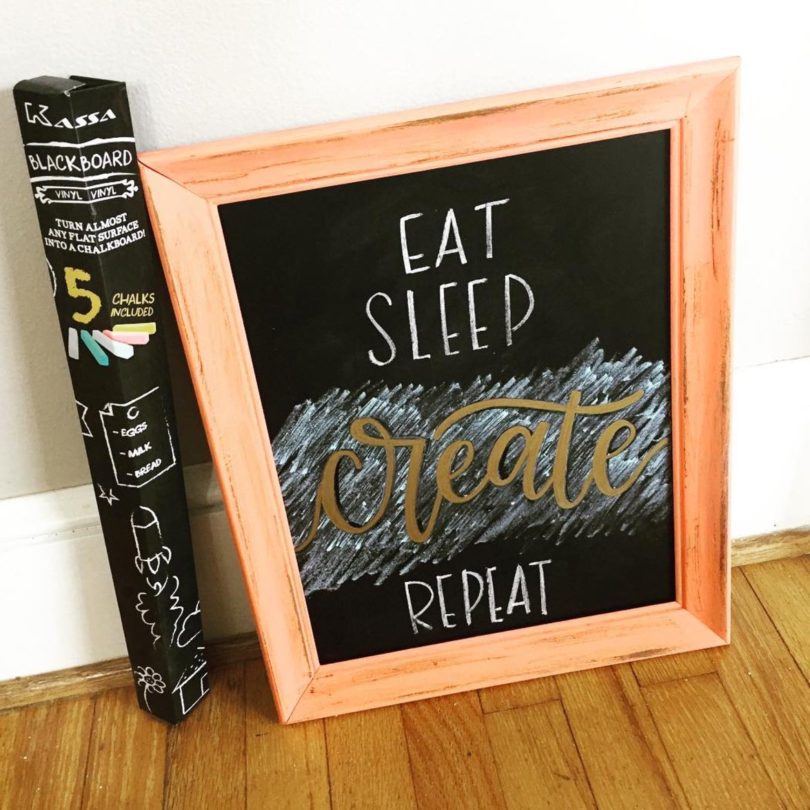 KASSA
BLACKBOARD
VINYL VINYL
TURN ALMOST
ANY FLAT SURFACE
INTO A CHALKBOARD!
5 CHALKS
INCLUDED
- EGGS
- MILK
- BREAD
EAT
SLEEP
create
REPEAT